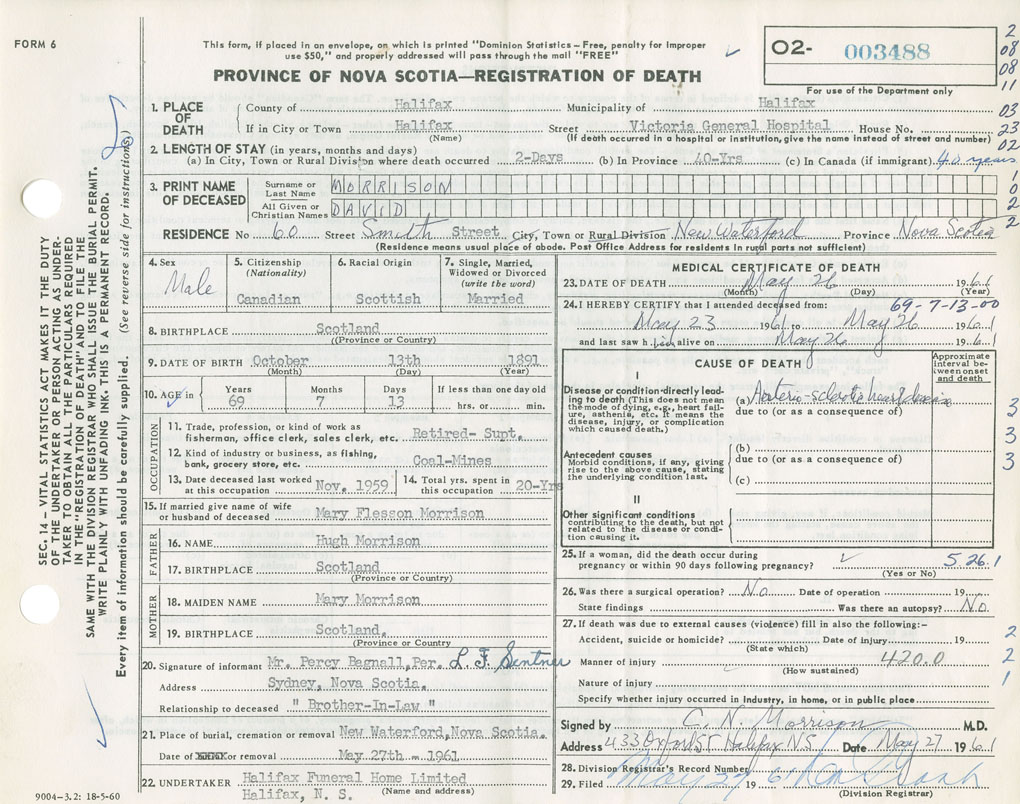 FORM 6
This form, if placed in an envelope, on which is printed "Dominion Statistics – Free, penalty for improper
use $50," and properly addressed will pass through the mail "FREE"
PROVINCE OF NOVA SCOTIA—REGISTRATION OF DEATH
O2- 003488
For use of the Department only
2
08
08
11
03
23
02
1
0
2
2
SEC. 14 – VITAL STATISTICS ACT MAKES IT THE DUTY
OF THE UNDERTAKER OR PERSON ACTING AS UNDER-
TAKER TO OBTAIN ALL THE PARTICULARS REQUIRED
IN THE "REGISTRATION OF DEATH" AND TO FILE THE
SAME WITH THE DIVISION REGISTRAR WHO SHALL ISSUE THE BURIAL PERMIT.
WRITE PLAINLY WITH UNFADING INK. THIS IS A PERMANENT RECORD.
Every item of information should be carefully supplied. (See reverse side for instructions)
1. PLACE OF DEATH
County of Halifax Municipality of Halifax
If in City or Town Halifax Street Victoria General Hospital House No.
(Name) (If death occurred in a hospital or institution, give the name instead of street and number)
2. LENGTH OF STAY (in years, months and days)
(a) In City, Town or Rural Division where death occurred 2-Days (b) In Province 40-Yrs (c) In Canada (if immigrant) 40 years
3. PRINT NAME OF DECEASED
Surname or Last Name MORRISON
All Given or Christian Names DAVID
RESIDENCE No 60 Street Smith Street City, Town or Rural Division New Waterford Province Nova Scotia
(Residence means usual place of abode. Post Office Address for residents in rural parts not sufficient)
4. Sex Male
5. Citizenship (Nationality) Canadian
6. Racial Origin Scottish
7. Single, Married, Widowed or Divorced (write the word) Married
8. BIRTHPLACE Scotland
(Province or Country)
9. DATE OF BIRTH October 13th 1891
(Month) (Day) (Year)
10. AGE in Years 69 Months 7 Days 13 If less than one day old hrs. or min.
OCCUPATION
11. Trade, profession, or kind of work as
fisherman, office clerk, sales clerk, etc. Retired- Supt.
12. Kind of industry or business, as fishing,
bank, grocery store, etc. Coal-Mines
13. Date deceased last worked
at this occupation Nov. 1959
14. Total yrs. spent in
this occupation 20-Yrs
15. If married give name of wife
or husband of deceased Mary Flesson Morrison
FATHER
16. NAME Hugh Morrison
17. BIRTHPLACE Scotland
(Province or Country)
MOTHER
18. MAIDEN NAME Mary Morrison
19. BIRTHPLACE Scotland.
(Province or Country
20. Signature of informant Mr. Percy Bagnall, Per. L. F. Sentner
Address Sydney, Nova Scotia.
Relationship to deceased " Brother-In-Law "
21. Place of burial, cremation or removal New Waterford, Nova Scotia.
Date of or removal May 27th 1961
22. UNDERTAKER Halifax Funeral Home Limited
Halifax, N. S. (Name and address)
9004-3.2: 18-5-60
MEDICAL CERTIFICATE OF DEATH
23. DATE OF DEATH May 26 1961
(Month) (Day) (Year)
24. I HEREBY CERTIFY that I attended deceased from: 69-7-13-00
May 23 1961 to May 26 1961
and last saw him alive on May 26 1961
CAUSE OF DEATH
Approximate interval between onset and death
I
Disease or condition directly lead-
ing to death (This does not mean
the mode of dying, e.g., heart fail-
ure, asthenia, etc. It means the
disease, injury, or complication
which caused death.)
(a) Arterio-sclerotic heart disease
due to (or as a consequence of)
Antecedent causes
Morbid conditions, if any, giving
rise to the above cause, stating
the underlying condition last.
(b)
due to (or as a consequence of)
(c)
3
3
3
II
Other significant conditions
contributing to the death, but not
related to the disease or condi-
tion causing it.
25. If a woman, did the death occur during
pregnancy or within 90 days following pregnancy? 5.26.1
(Yes or No)
26. Was there a surgical operation? No Date of operation 19
State findings Was there an autopsy? No
27. If death was due to external causes (violence) fill in also the following:-
Accident, suicide or homicide? Date of injury 19
(State which)
Manner of injury 420.0
(How sustained)
Nature of injury
Specify whether injury occurred in industry, in home, or in public place
2
2
1
Signed by C. N. Morrison M.D.
Address 433 Oxford St Halifax N S Date May 27 1961
28. Division Registrar's Record Number
29. Filed May 27 19 61
(Division Registrar)